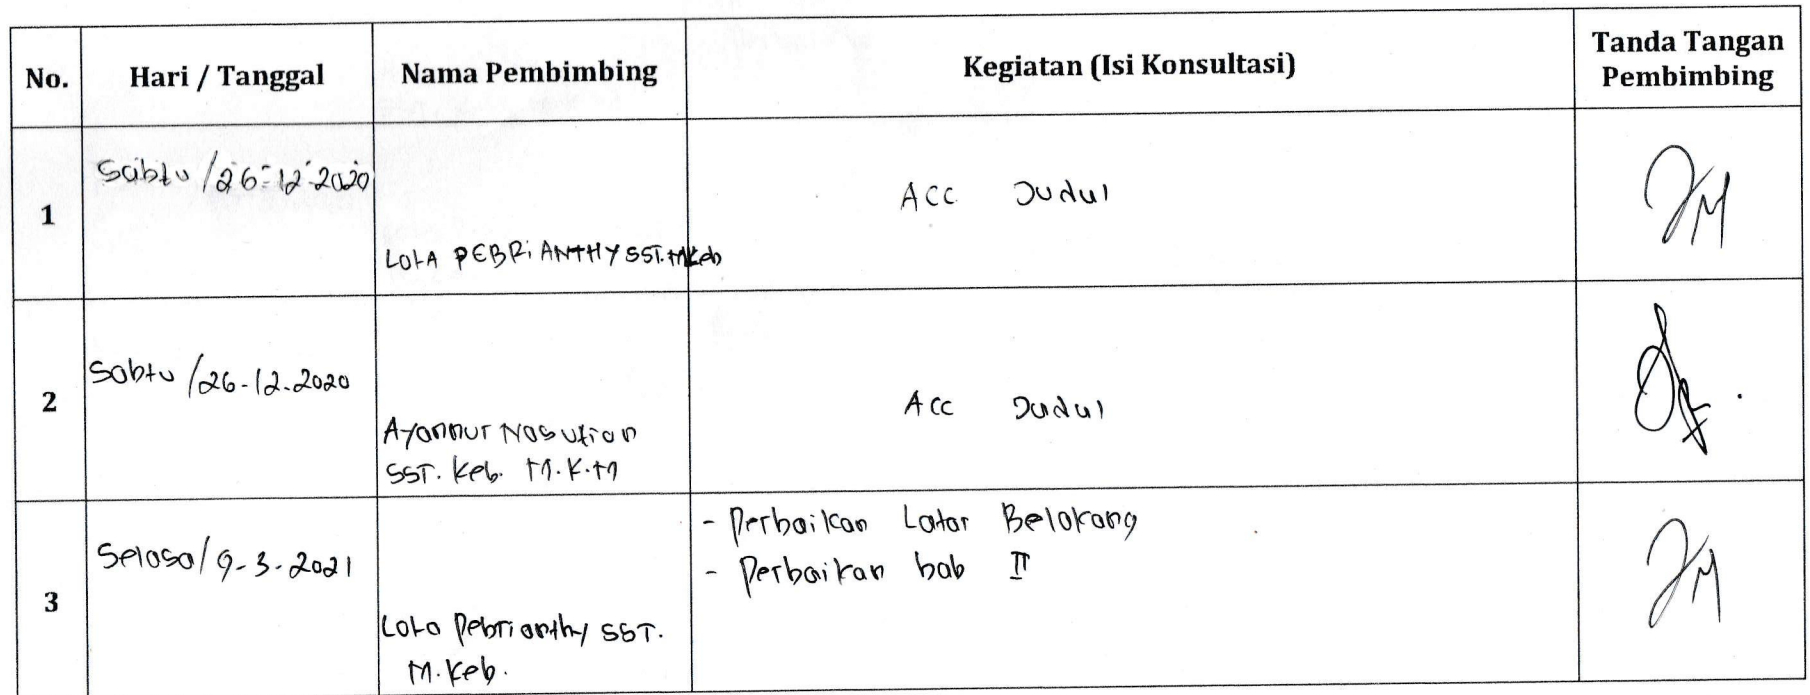 No. Hari / Tanggal Nama Pembimbing Kegiatan (Isi Konsultasi) Tanda Tangan
Pembimbing
1
Sabtu /26-12-2020
LOLA PEBRiANTHY SST. MKeb
Acc Judul
2
Sabtu /26-12-2020
Ayannur Nasution
SST. Keb. M.K.M
Acc Judul
3
Selasa/ 9-3-2021
Lola Pebrianthy SST.
M.Keb.
- Perbaikan Latar Belakang
- Perbaikan bab II